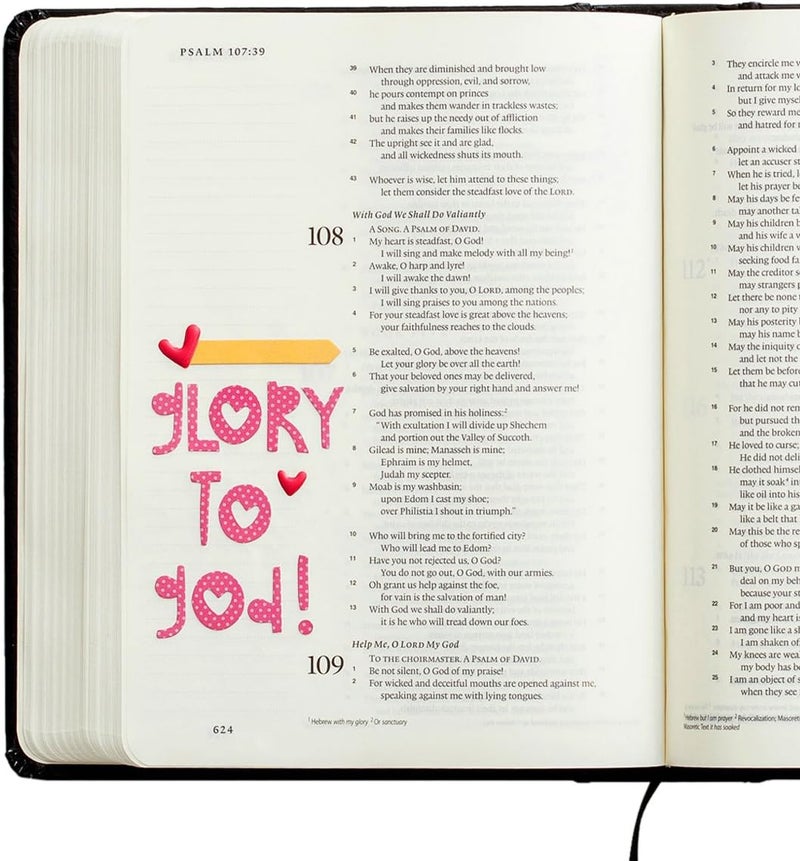 PSALM 107:39
39 When they are diminished and brought low
through oppression, evil, and sorrow,
40 he pours contempt on princes
and makes them wander in trackless wastes;
41 but he raises up the needy out of affliction
and makes their families like flocks.
42 The upright see it and are glad,
and all wickedness shuts its mouth.
43 Whoever is wise, let him attend to these things;
let them consider the steadfast love of the LORD.
With God We Shall Do Valiantly
A SONG. A PSALM OF DAVID.
108 1 My heart is steadfast, O God!
I will sing and make melody with all my being!1
2 Awake, O harp and lyre!
I will awake the dawn!
3 I will give thanks to you, O LORD, among the peoples;
I will sing praises to you among the nations.
4 For your steadfast love is great above the heavens;
your faithfulness reaches to the clouds.
5 Be exalted, O God, above the heavens!
Let your glory be over all the earth!
6 That your beloved ones may be delivered,
give salvation by your right hand and answer me!
7 God has promised in his holiness:2
"With exultation I will divide up Shechem
and portion out the Valley of Succoth.
8 Gilead is mine; Manasseh is mine;
Ephraim is my helmet,
Judah my scepter.
9 Moab is my washbasin;
upon Edom I cast my shoe;
over Philistia I shout in triumph."
10 Who will bring me to the fortified city?
Who will lead me to Edom?
11 Have you not rejected us, O God?
You do not go out, O God, with our armies.
12 Oh grant us help against the foe,
for vain is the salvation of man!
13 With God we shall do valiantly;
it is he who will tread down our foes.
Help Me, O LORD My God
TO THE CHOIRMASTER. A PSALM OF DAVID.
109 1 Be not silent, O God of my praise!
2 For wicked and deceitful mouths are opened against me,
speaking against me with lying tongues.
1 Hebrew with my glory 2 Or sanctuary
624
GLORY
TO
GOd!
3 They encircle me
and attack me
4 In return for my
but I give
5 So they reward me
and hatred for
6 Appoint a wicked
let an accuser
7 When he is tried,
let his prayer
8 May his days be
may another
9 May his children
and his wife a
10 May his children
seeking food
11 May the creditor
may strangers
12 Let there be none
nor any to pity
13 May his posterity
may his name
14 May the iniquity
and let not the
15 Let them be
that he may
16 For he did not
but pursued
and the broken
17 He loved to curse;
He did not
18 He clothed himself
may it soak4
like oil into his
19 May it be like a
like a belt that
20 May this be the
of those who
21 But you, O GOD
deal on my
because your
22 For I am poor and
and my heart is
23 I am gone like a
I am shaken
24 My knees are
my body has
25 I am an object of
when they see
1 Hebrew but I am prayer 2 Revocalization;
Masoretic Text it has soaked